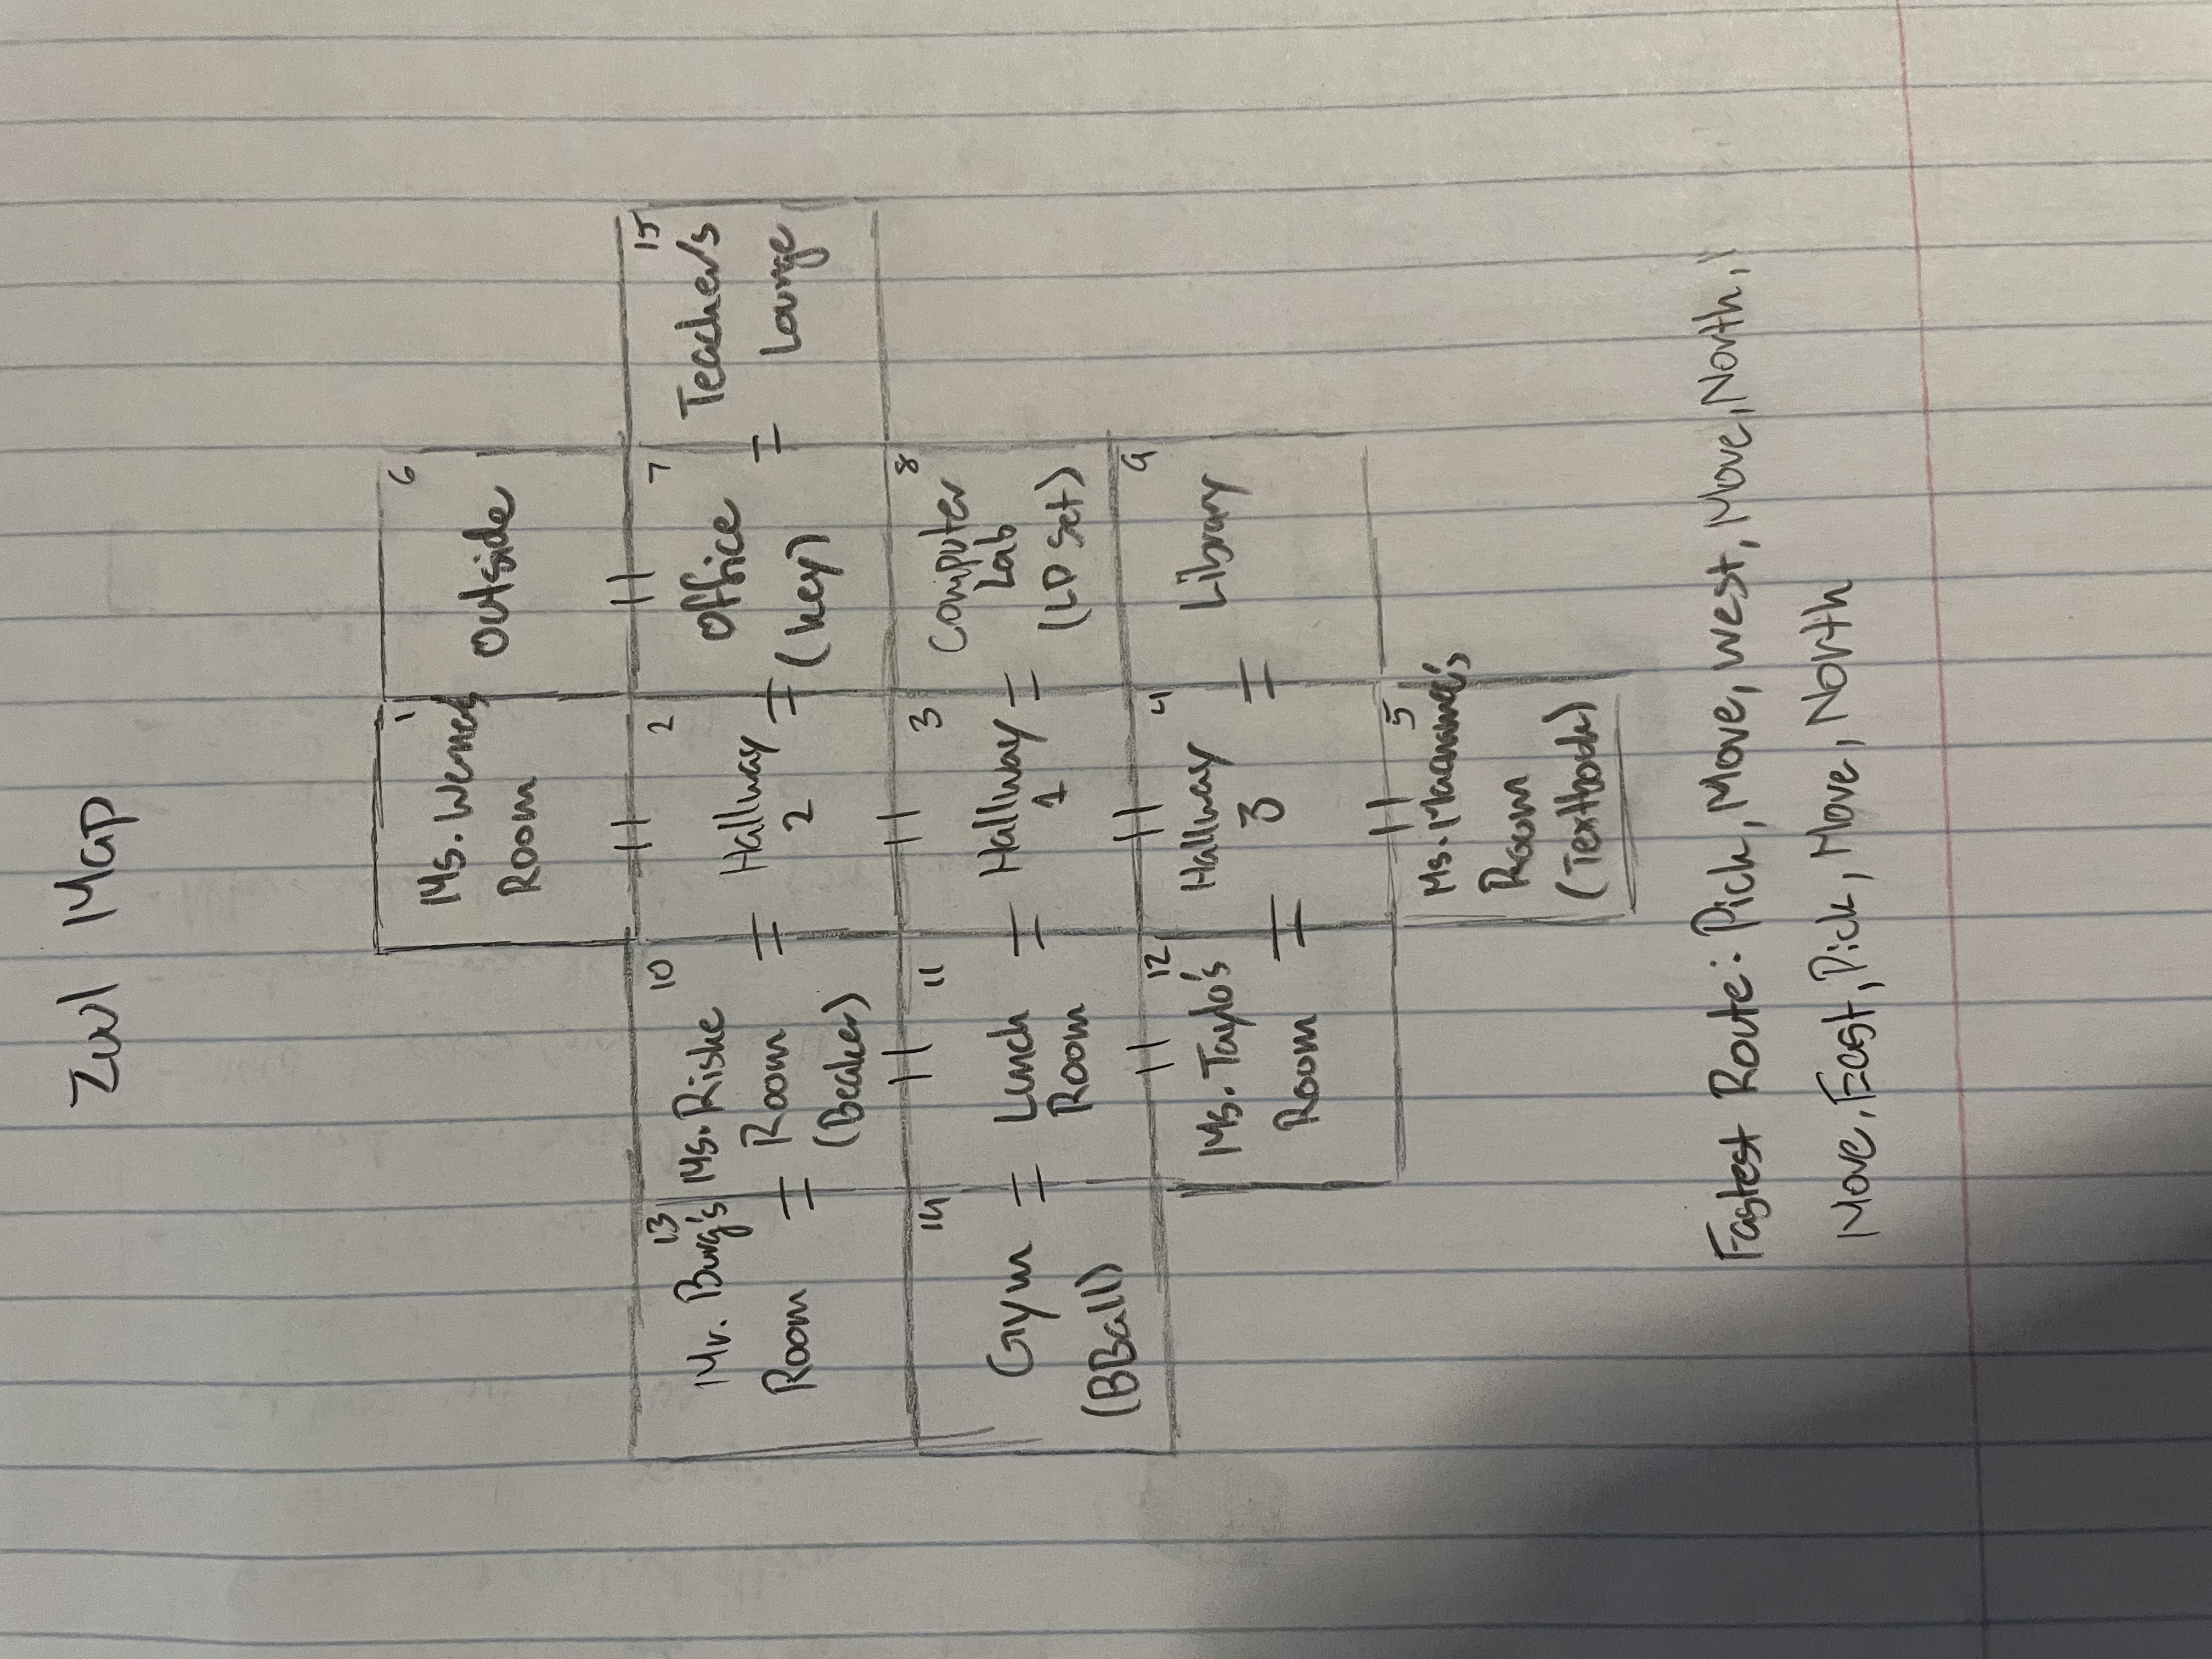 Zuul Map
1
Ms. Werner's
Room
6
Outside
13
Mr. Burg's
Room
10
Ms. Riske
Room
(Beaker)
2
Hallway
2
7
Office
(key)
15
Teacher's
Lounge
14
Gym
(BBall)
11
Lunch
Room
3
Hallway
1
8
Computer
Lab
(LD Set)
12
Ms. Taylo's
Room
4
Hallway
3
9
Library
5
Ms.
Room
(Textbook)
Fastest Route: Pick, Move, West, Move, North,
Move, East, Pick, Move, North